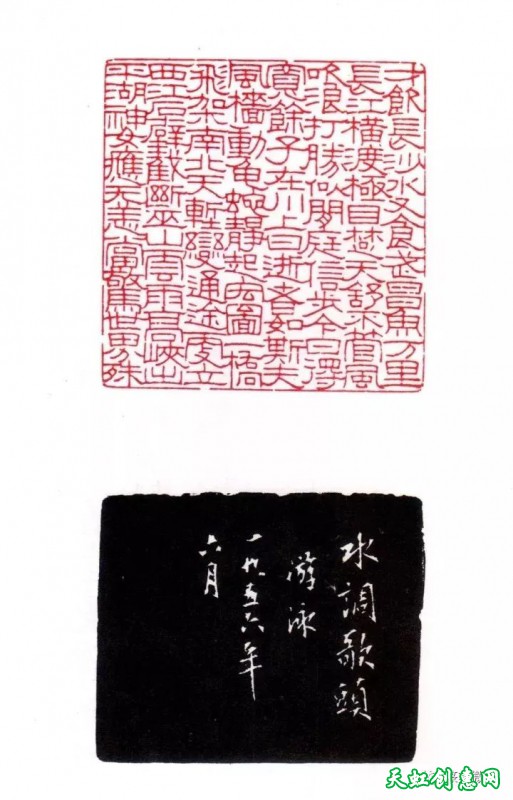 才飲長沙水又食武昌魚万里
長江橫渡極目楚天舒不管風
吹浪打勝似閒庭信步今日得
寬餘子在川上曰逝者如斯夫
風檣動龜蛇靜起宏圖一橋
飛架南北天塹變通途更立
西江石壁截斷巫山雲雨高峽出
平湖神女應无恙當驚世界殊
水調歌頭
游泳
一九五六年
六月
天虹创意网